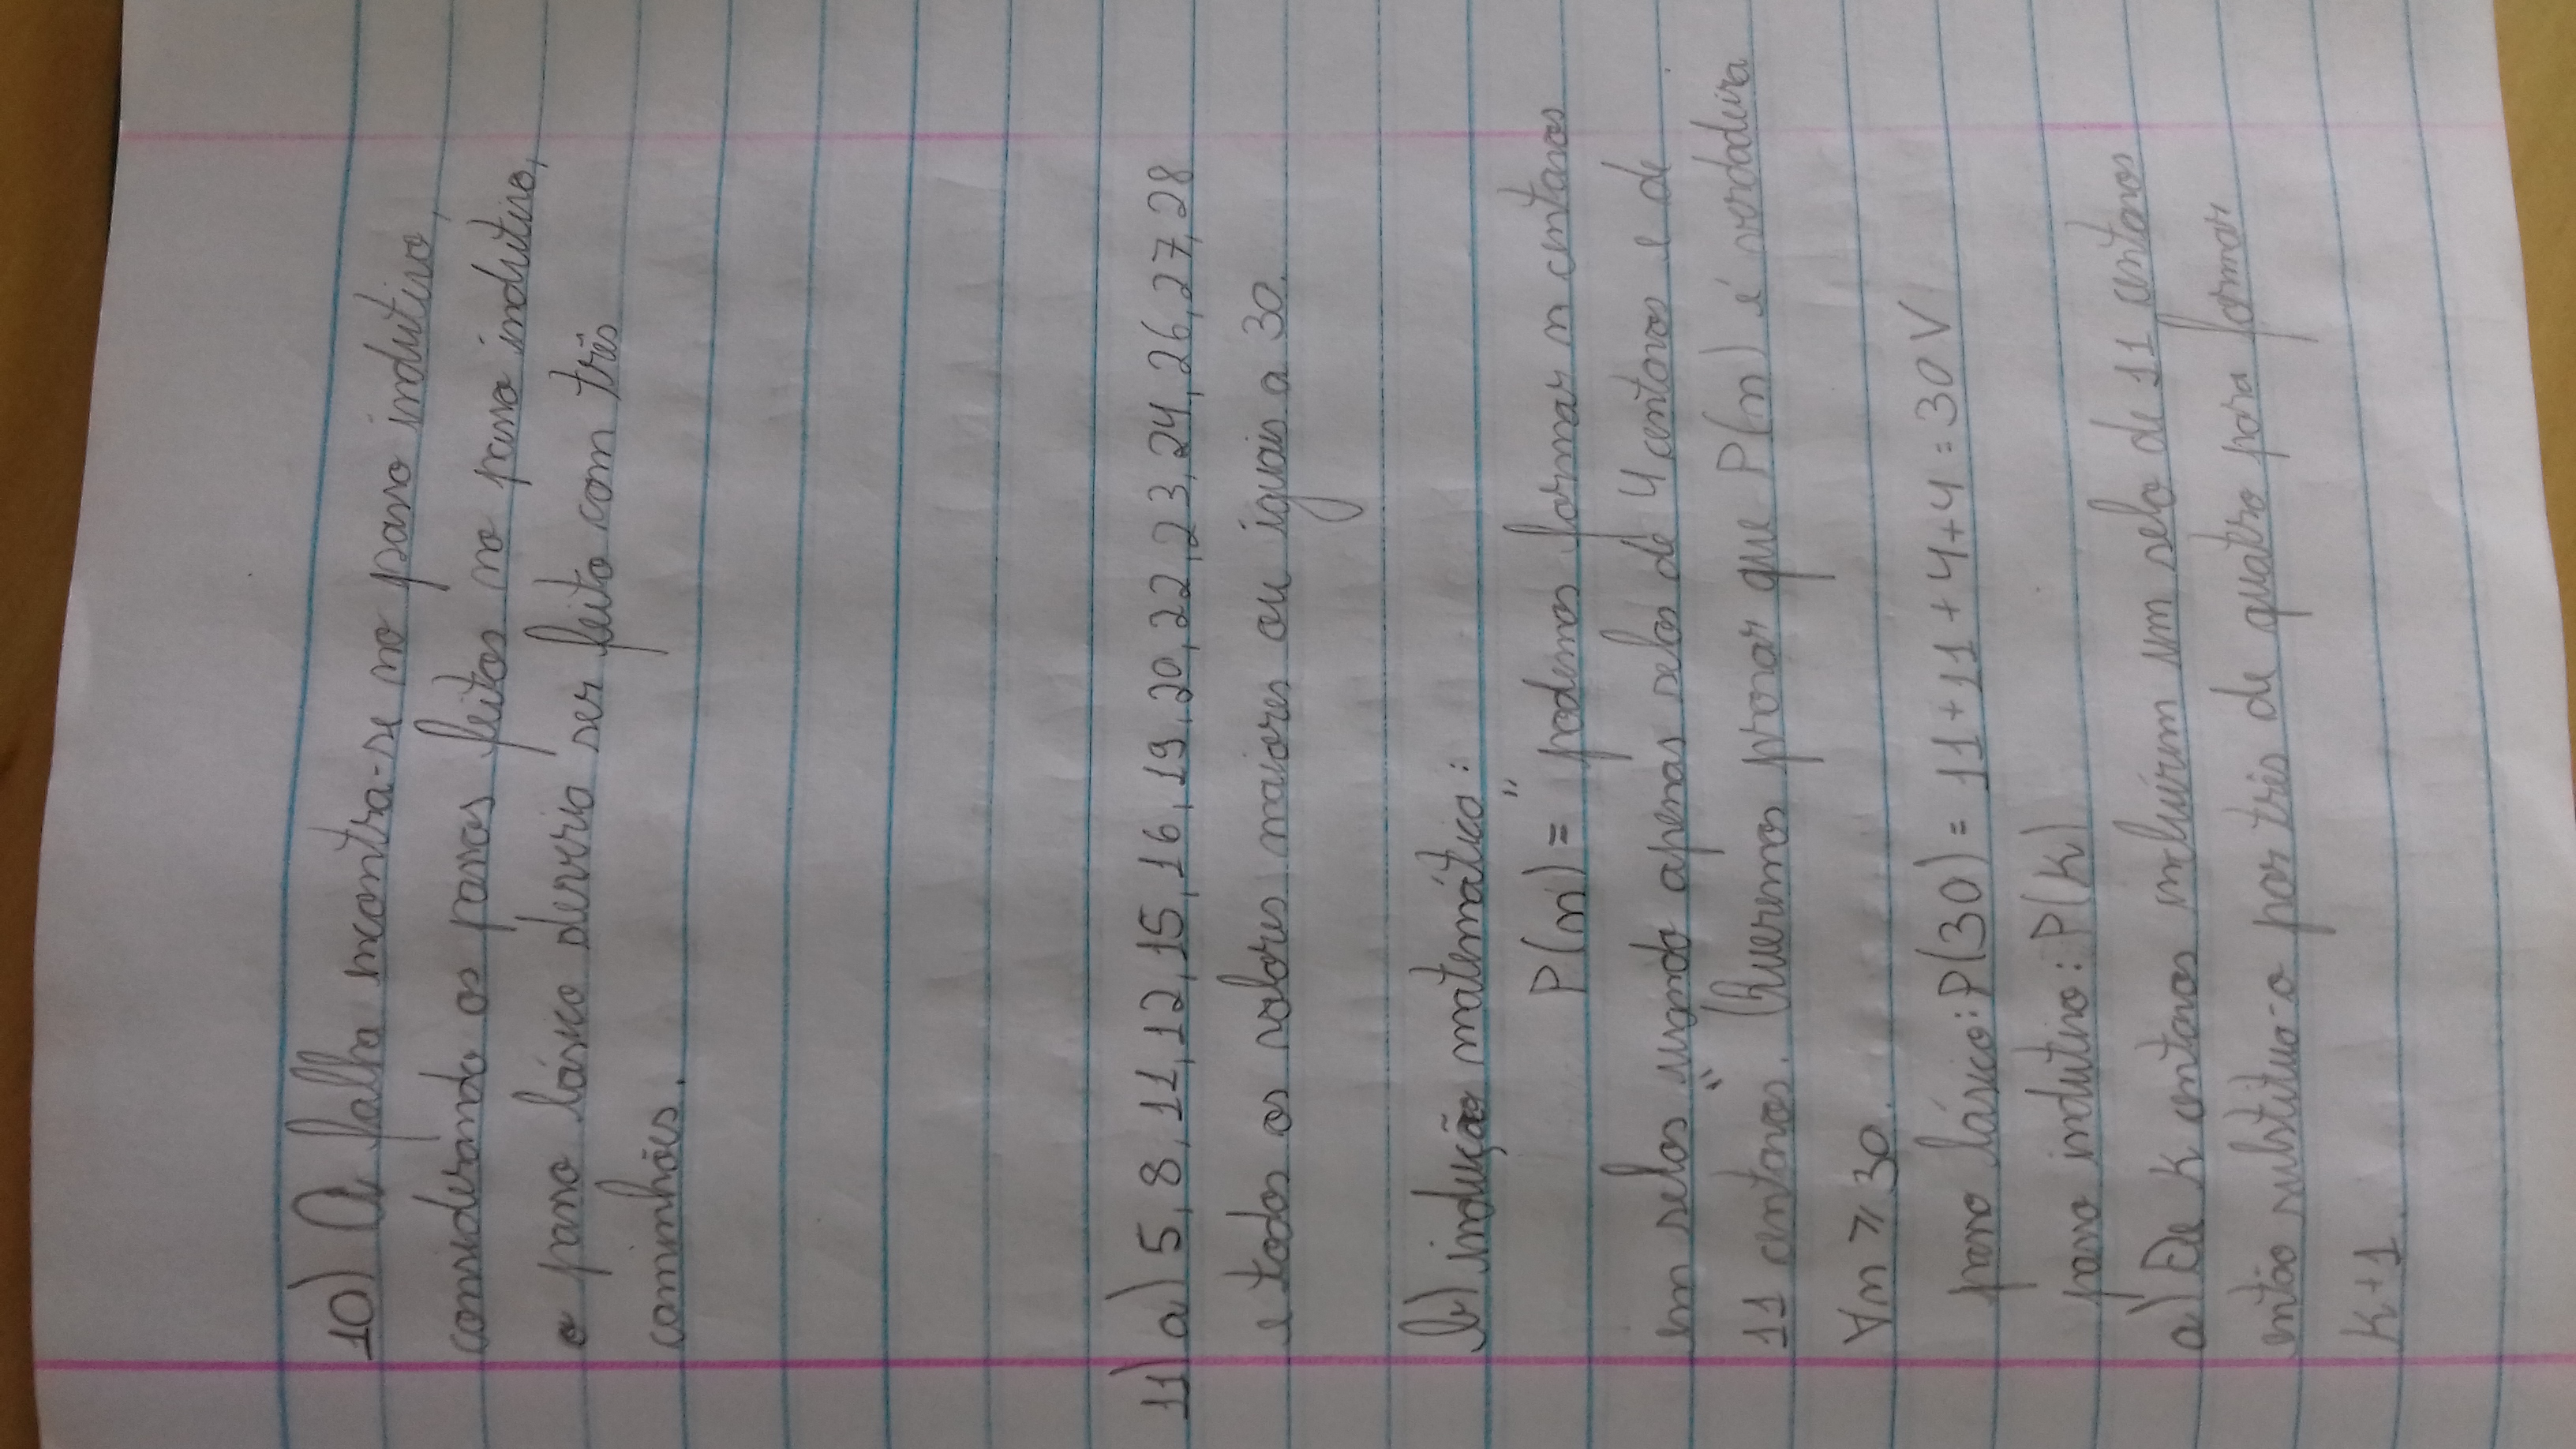 10) A falha incontra-se no passo indutivo,
considerando os passos feitos no passo indutivo,
o passo básico deveria ser feito com três
caminhões.
11) a) 5, 8, 11, 12, 15, 16, 19, 20, 22, 23, 24, 26, 27, 28
e todos os valores maiores ou iguais a 30.
b) indução matemática:
P(n) = "podemos formar n centavos
em selos usando apenas selos de 4 centavos e de
11 centavos." Queremos provar que P(n) é verdadeira
∀n ⩾ 30.
passo básico: P(30) = 11+11+4+4=30 V
passo indutivo: P(k)
a) Se k centavos incluírem um selo de 11 centavos
então substitua-o por três de quatro para formar
k+1.